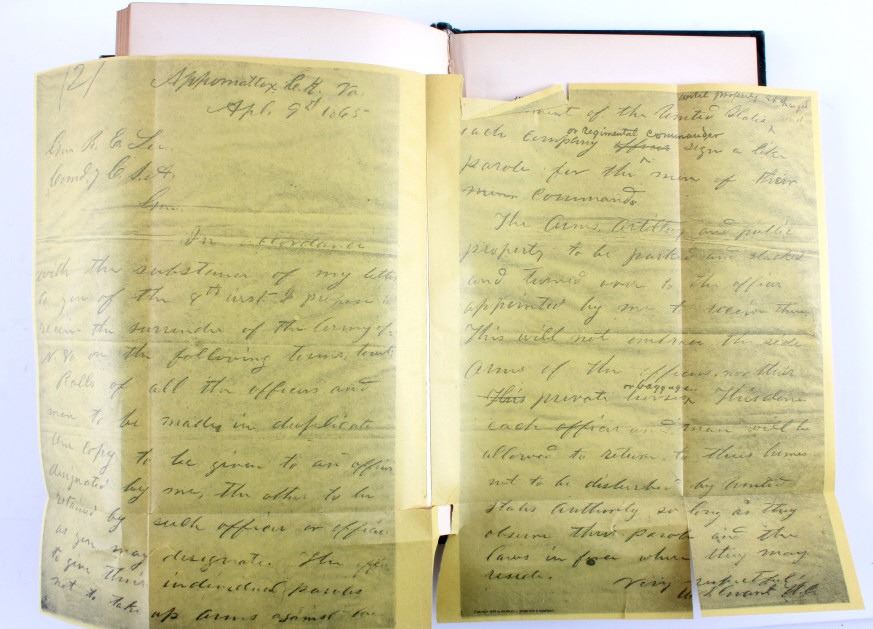 (2)
Appomattox C. H. Va.
Apl. 9th 1865
Gen R. E. Lee
Comdg C. S. A.
Gen.
In accordance
with the substance of my letter
to you of the 8th inst. I propose to
receive the surrender of the Army of
N. Va on the following terms, to wit:
Rolls of all the officers and
men to be made in duplicate
One copy to be given to an officer
designated by me, the other to be
retained by such officer or officers
as you may designate. The officers
to give their individual paroles
not to take up arms against the
until properly exchanged
ment of the United States and
or regimental commander
each company officer sign a like
parole for the men of their
commands
The Arms, Artillery and public
property to be parked and stacked
and turned over to the officer
appointed by me to receive them
This will not embrace the side
Arms of the officers, nor their
or baggage
This private horses This done
each officer and man will be
allowed to return to their homes
not to be disturbed by United
States Authority so long as they
observe their parole and the
laws in force where they may
reside.
Very respectfully
U. S. Grant Lt. Gl